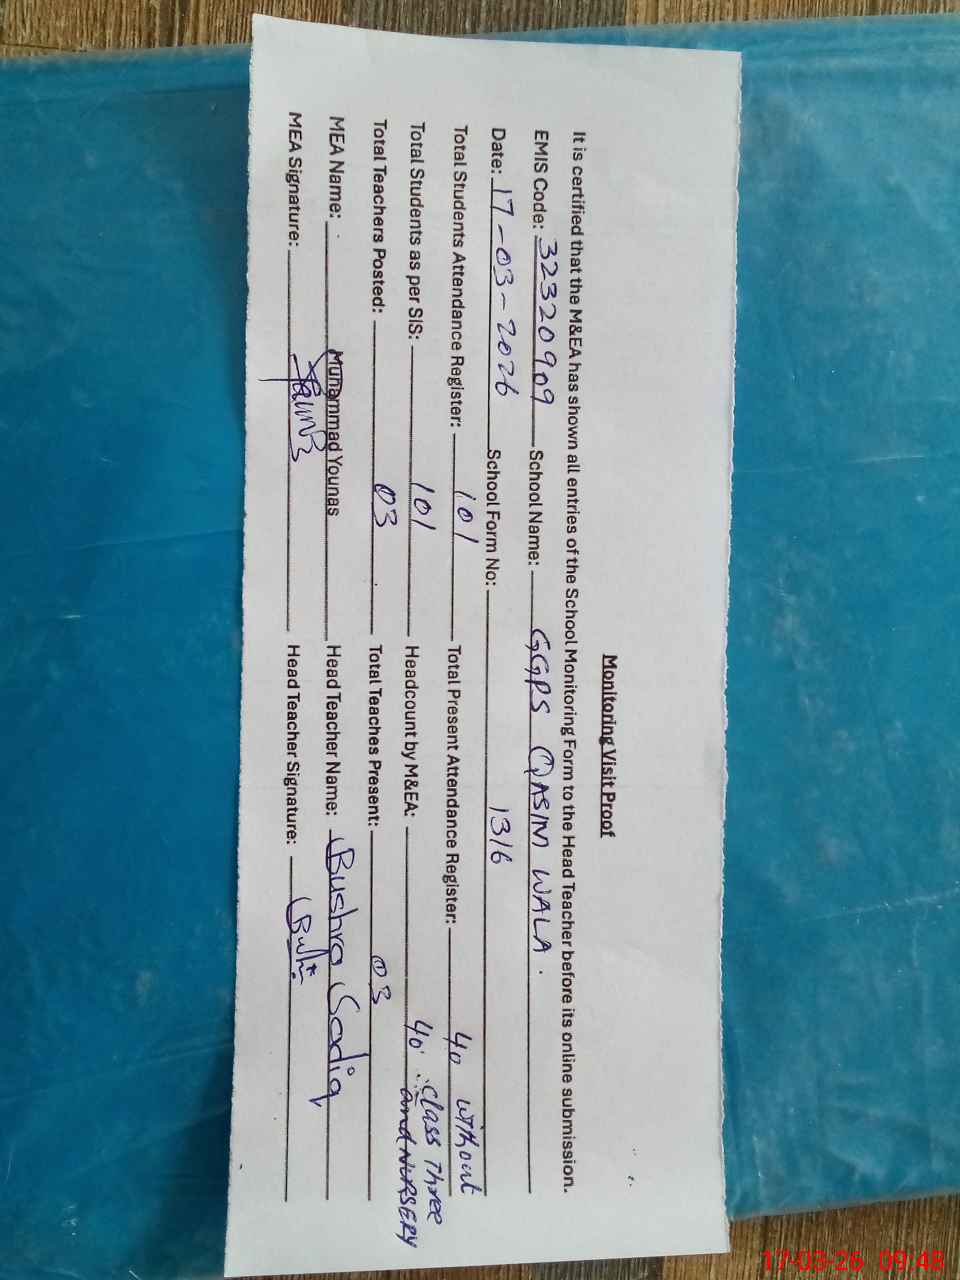 Monitoring Visit Proof
It is certified that the M&EA has shown all entries of the School Monitoring Form to the Head Teacher before its online submission.
EMIS Code: 32320909 School Name: GGPS QASIM WALA.
Date: 17-03-2026 School Form No: 1316
Total Students Attendance Register: 101 Total Present Attendance Register: 40 without
Total Students as per SIS: 101 Headcount by M&EA: 40 class Three and NURSERY
Total Teachers Posted: 03 Total Teaches Present: 03
MEA Name: Muhammad Younas Head Teacher Name: Bushra Sadiq
MEA Signature: Head Teacher Signature:
17-03-26 09:48